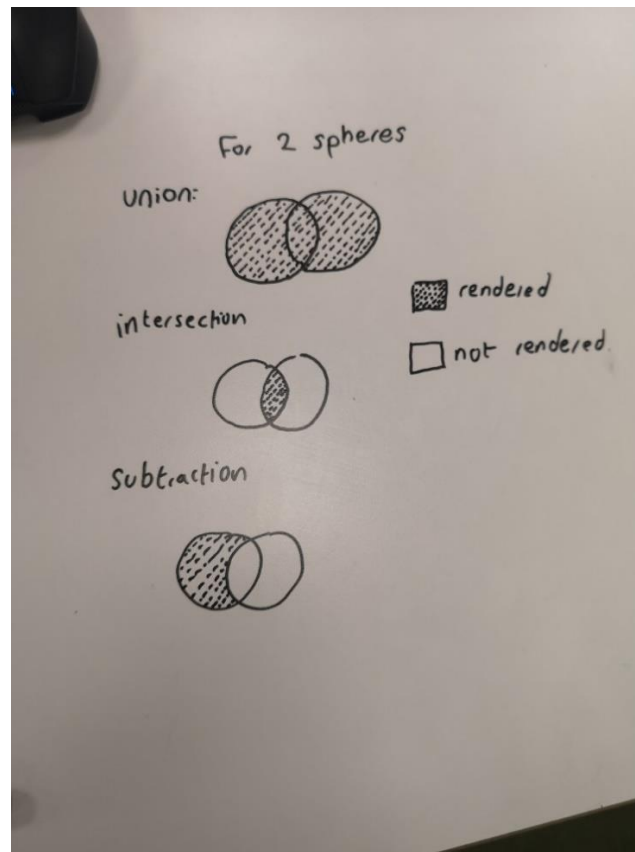 For 2 spheres
Union:
rendered
intersection
not rendered.
Subtraction